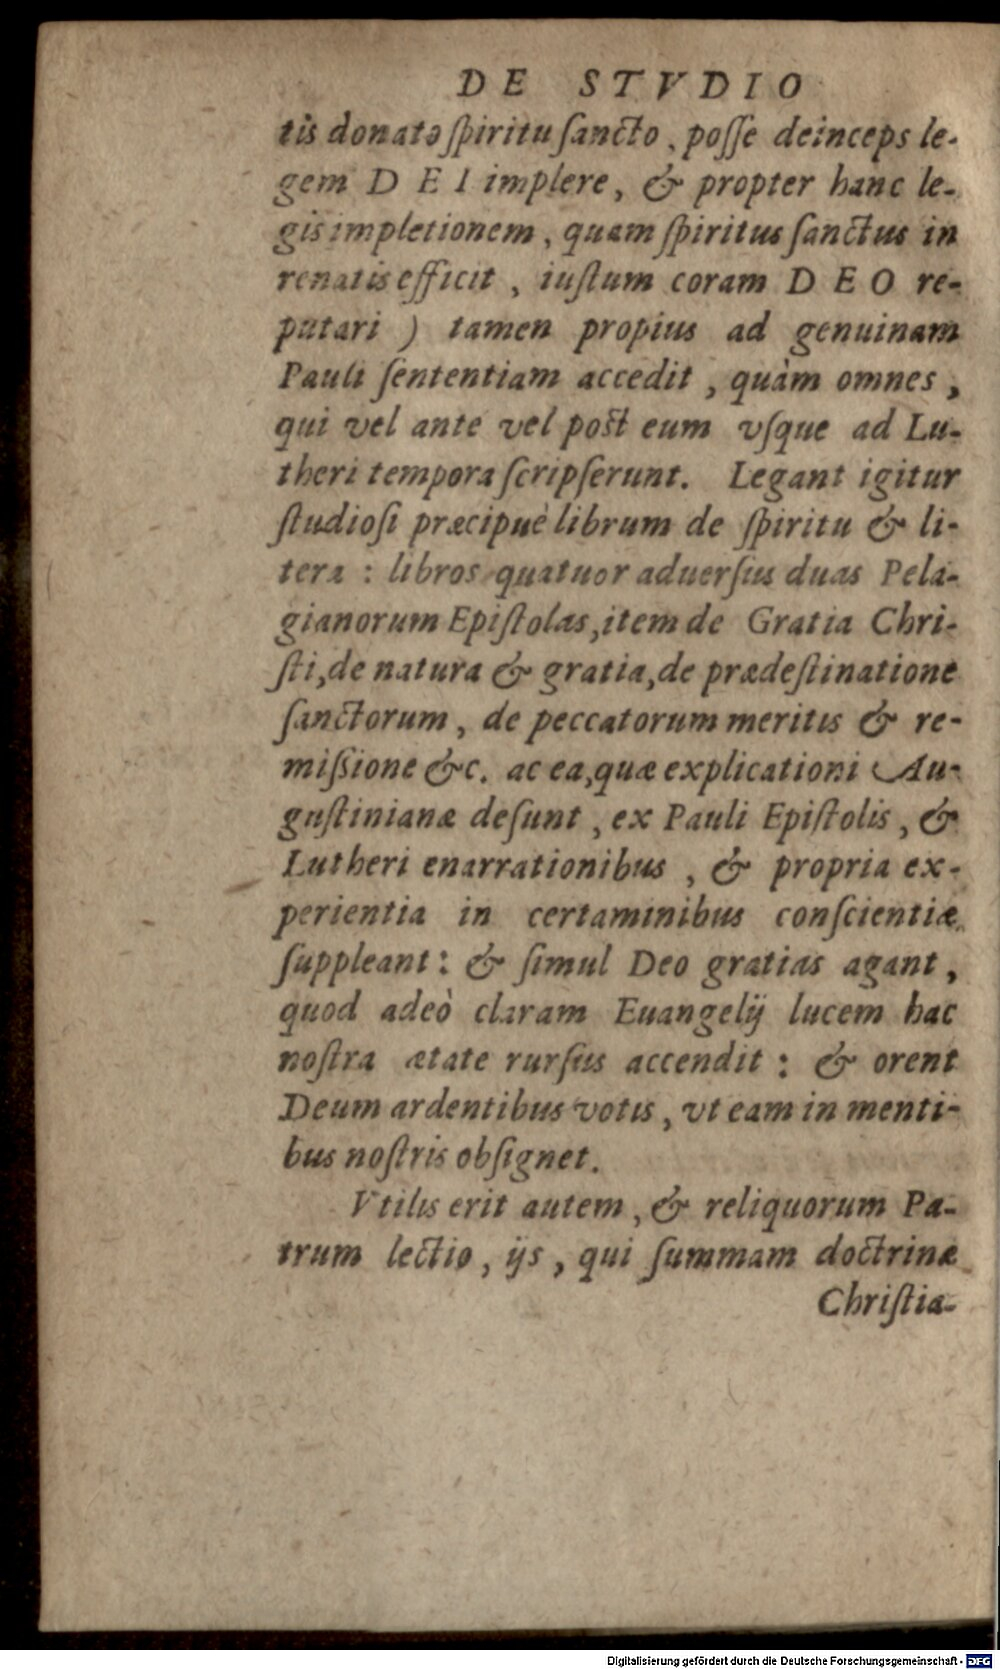 DE STVDIO
tis donato ſpiritu ſancto, poſſe deinceps le-
gem DEI implere, & propter hanc le-
gis impletionem, quam ſpiritus ſanctus in
renatis efficit, iuſtum coram DEO re-
putari) tamen propius ad genuinam
Pauli ſententiam accedit, quàm omnes,
qui vel ante vel poſt eum vſque ad Lu-
theri tempora ſcripſerunt. Legant igitur
ſtudioſi præcipuè librum de ſpiritu & li-
tera: libros quatuor aduerſus duas Pela-
gianorum Epiſtolas, item de Gratia Chri-
ſti, de natura & gratia, de prædeſtinatione
ſanctorum, de peccatorum meritis & re-
miſsione &c. ac ea, quæ explicationi Au-
guſtinianæ deſunt, ex Pauli Epiſtolis, &
Lutheri enarrationibus, & propria ex-
perientia in certaminibus conſcientiæ
ſuppleant: & ſimul Deo gratias agant,
quod adeò claram Euangelij lucem hac
noſtra ætate rurſus accendit: & orent
Deum ardentibus votis, vt eam in menti-
bus noſtris obſignet.
Vtilis erit autem, & reliquorum Pa-
trum lectio, ijs, qui ſummam doctrinæ
Chriſtia-
Digitalisierung gefördert durch die Deutsche Forschungsgemeinschaft - DFG